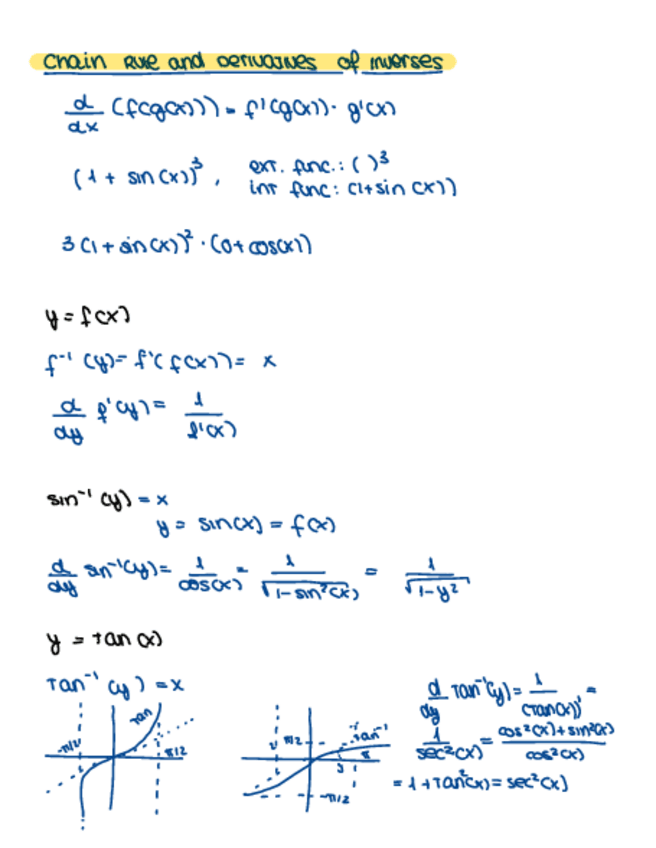 Chain Rule and Derivatives of inverses
d/dx (f(g(x))) = f'(g(x)) · g'(x)
(1 + sin(x))³, ext. func.: ( )³
int func: (1+sin(x))
3(1+sin(x))² · (0+cos(x))
y = f(x)
f⁻¹(y) = f'(f(x)) = x
d/dy f'(y) = 1/f'(x)
sin⁻¹(y) = x
y = sin(x) = f(x)
d/dy sin⁻¹(y) = 1/cos(x) = 1/√(1-sin²(x)) = 1/√(1-y²)
y = tan(x)
tan⁻¹(y) = x
d/dy tan⁻¹(y) = 1/(tan(x))' =
1/sec²(x) = (cos²(x)+sin²(x))/cos²(x)
= 1+tan²(x) = sec²(x)
-π/2 tan π/2
π/2 tan⁻¹
-π/2